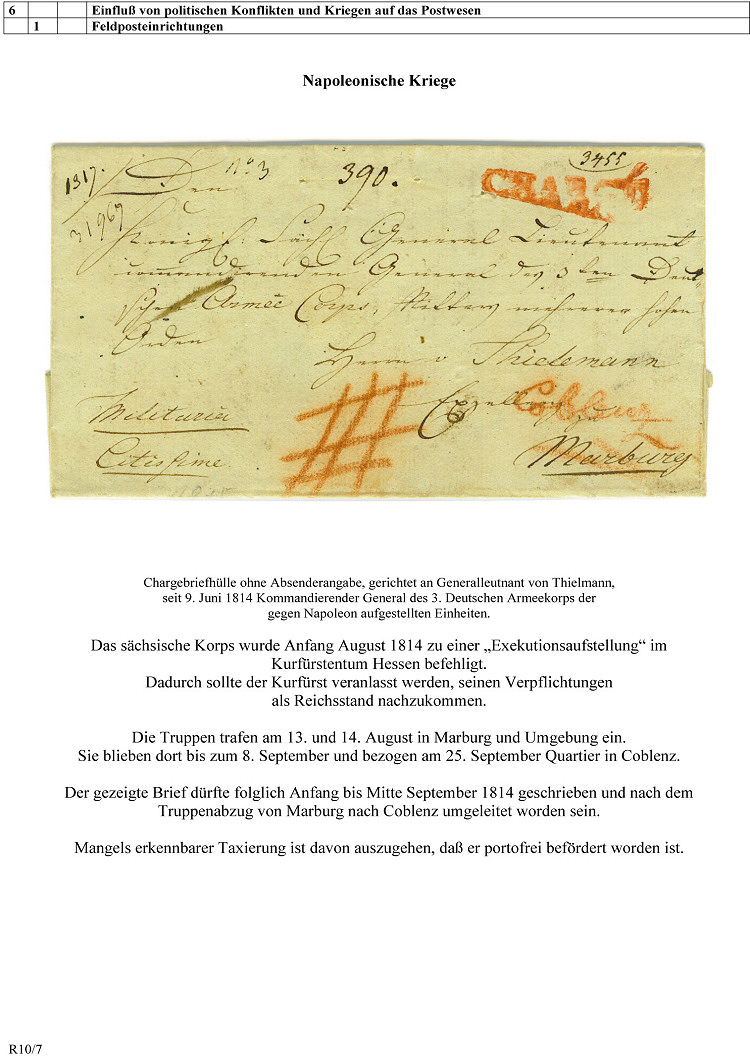 6 Einfluß von politischen Konflikten und Kriegen auf das Postwesen
1 Feldposteinrichtungen
Napoleonische Kriege
3455
1317. Den No 3 390. CHARGÉ
31967
Königl: Sächs General Lieutenant
commandirenden General des 3ten Deut-
schen Armée Corps, Ritter mehrerer hohen
Orden
Herrn v Thielemann
Militaria Excellenz Coblenz
zu
Citissime Marburg
Chargebriefhülle ohne Absenderangabe, gerichtet an Generalleutnant von Thielmann,
seit 9. Juni 1814 Kommandierender General des 3. Deutschen Armeekorps der
gegen Napoleon aufgestellten Einheiten.
Das sächsische Korps wurde Anfang August 1814 zu einer „Exekutionsaufstellung“ im
Kurfürstentum Hessen befehligt.
Dadurch sollte der Kurfürst veranlasst werden, seinen Verpflichtungen
als Reichsstand nachzukommen.
Die Truppen trafen am 13. und 14. August in Marburg und Umgebung ein.
Sie blieben dort bis zum 8. September und bezogen am 25. September Quartier in Coblenz.
Der gezeigte Brief dürfte folglich Anfang bis Mitte September 1814 geschrieben und nach dem
Truppenabzug von Marburg nach Coblenz umgeleitet worden sein.
Mangels erkennbarer Taxierung ist davon auszugehen, daß er portofrei befördert worden ist.
R10/7